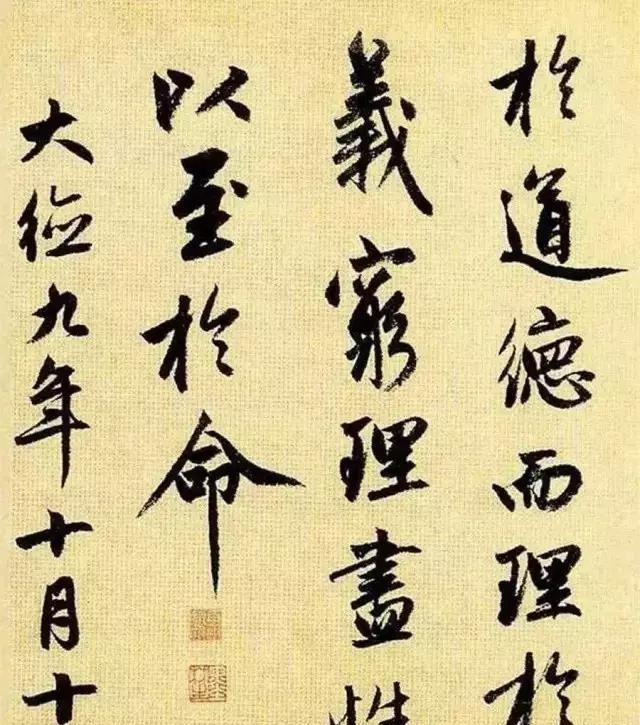 於道德而理於
義窮理盡性
以至於命
大德九年十月十